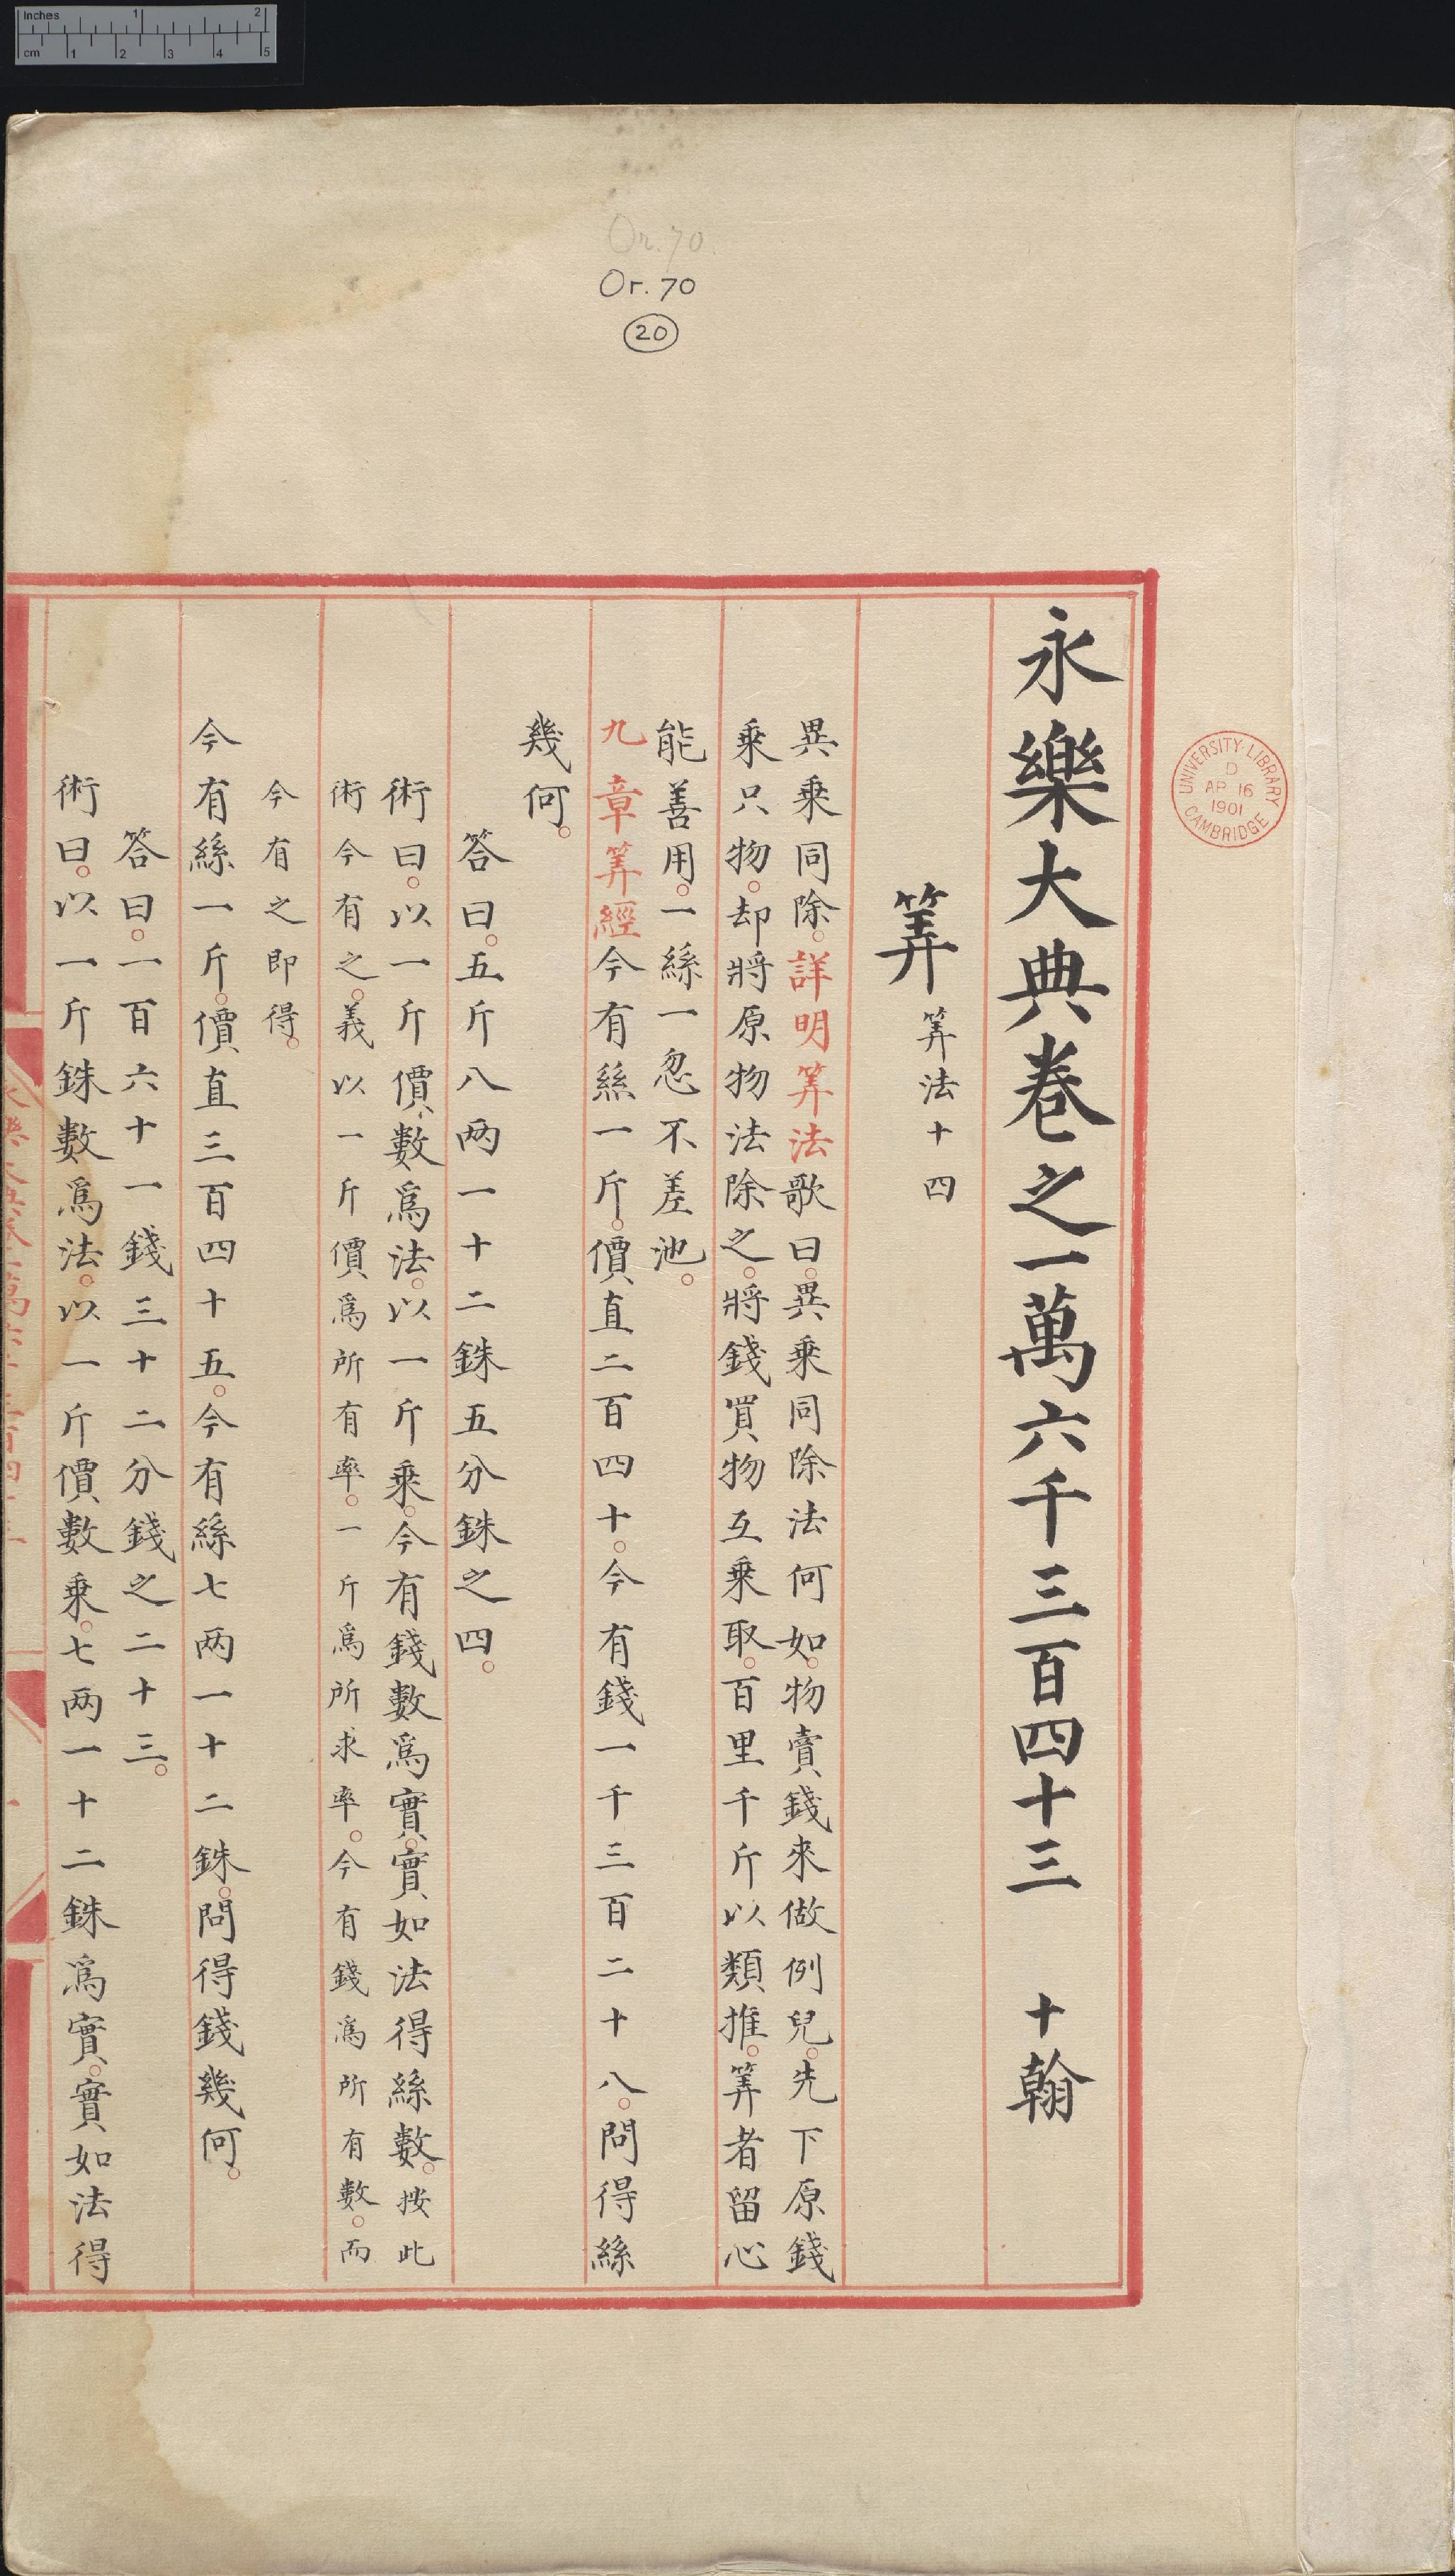 Inches 1 2
cm 1 2 3 4 5
Or. 70
Or. 70
20
UNIVERSITY·LIBRARY
D
AP 16
1901
CAMBRIDGE
永樂大典卷之一萬六千三百四十三 十翰
筭 筭法十四
異乗同除。詳明筭法歌曰。異乗同除法何如。物賣錢來做例兒。先下原錢
乗只物。却將原物法除之。將錢買物互乗取。百里千斤以類推。筭者留心
能善用。一絲一忽不差池。
九章筭經今有絲一斤。價直二百四十。今有錢一千三百二十八。問得絲
幾何。
答曰。五斤八两一十二銖五分銖之四。
術曰。以一斤價數爲法。以一斤乗。今有錢數爲實。實如法得絲數。按此
術今有之。義以一斤價爲所有率。一斤爲所求率。今有錢爲所有數。而
今有之即得。
今有絲一斤。價直三百四十五。今有絲七两一十二銖。問得錢幾何。
答曰。一百六十一錢三十二分錢之二十三。
術曰。以一斤銖數爲法。以一斤價數乗。七两一十二銖爲實。實如法得